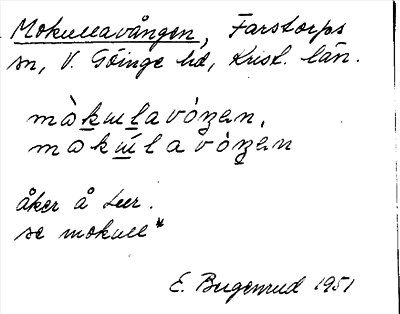 Mokullavången, Farstorps
sn, V. Göinge hd, Krist. län.
måkulavóŋen,
makúlavòŋen
åker å Ler.
se mokull*
E. Bugenrud 1951